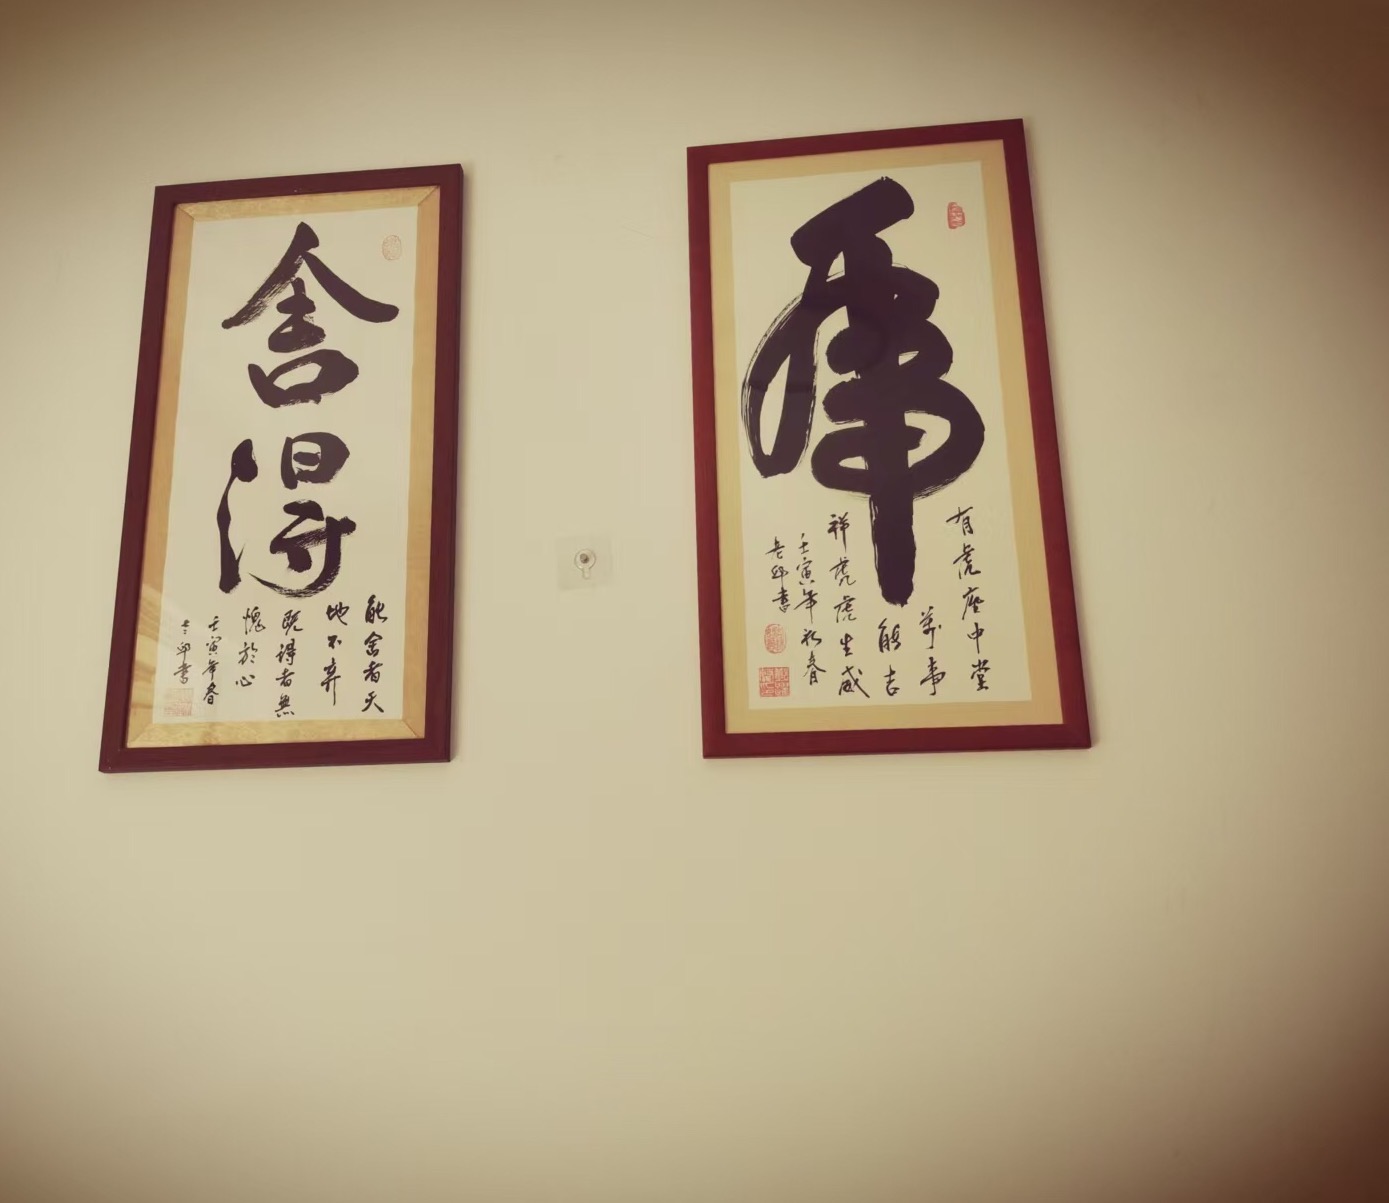 舍得
能舍者天
地不弃
既得者無
愧於心
壬寅年春
虎
有虎座中堂
萬事
能吉
祥虎虎生威
壬寅年初春